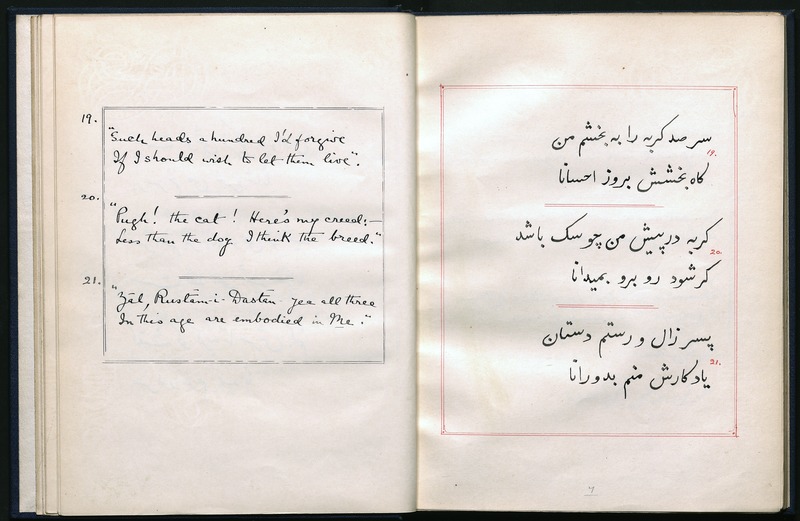 19.
"Such heads a hundred I'd forgive
If I should wish to let them live".
20.
"Pugh! the cat! Here's my creed:—
Less than the dog I think the breed."
21.
"Zál, Rustám-i-Dastán - yea all three
In this age are embodied in Me."
سر صد کربه را به بخشم من
19.
کاه بخشش بروز احسانا
کربه در پیش من چو سک باشد
20.
کر شود رو برو بمیدانا
پسر زال و رستم دستان
21.
یادکارش منم بدورانا
۷